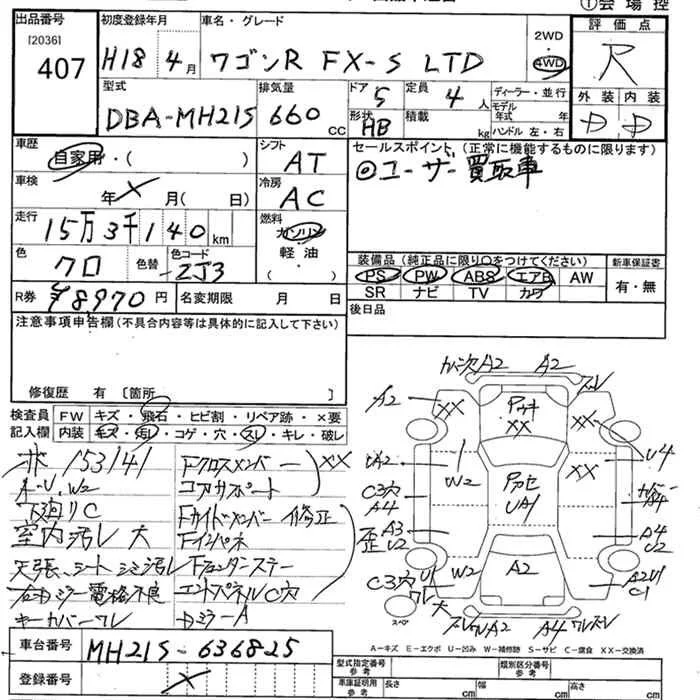 ①会場控
出品番号
[2036]
407
初度登録年月
H18 4月
車名・グレード
ワゴンR FX-S LTD
2WD
・
4WD
評価点
R
外装 内装
D D
型式
DBA-MH21S
排気量
660 cc
ドア 5
形状 HB
定員 4人
積載 kg
ディーラー・並行
モデル年式 年
ハンドル 左・右
車歴
自家用・( )
シフト
AT
セールスポイント(正常に機能するものに限ります)
◎ユーザー買取車
車検
年 × 月( 日)
冷房
AC
走行
15万3千140 km
燃料
ガソリン
軽油
( )
色
クロ
色替
色コード
ZJ3
装備品(純正品に限り○をつけてください)
PS PW ABS エアB AW
SR ナビ TV カワ
新車保証書
有・無
R券 ¥8970円
名変期限 月 日
後日品
注意事項申告欄(不具合内容等は具体的に記入して下さい)
修復歴 有 〔箇所 〕
検査員記入欄
FW キズ・飛石・ヒビ割・リペア跡・×要
内装 キズ・汚レ・コゲ・穴・スレ・キレ・破レ
153141
下廻リC
室内汚レ 大
天張、シートシミ汚レ
左電格ミラー不良
キーカバーワレ
Fクロスメンバー XX
コアサポート
Fサイドメンバー 修正
Fインパネ
エンドパネルC穴
カバー欠A2 A2
A2
XX
XX
XX
XX
U4
UA2
W2
C3穴
A4
UA1
歪 A3
U2
A4
U2
W2
A2
C3穴 U1
ワレ 大
A2U1
C1
A4
スペア
A−キズ E−エクボ U−凹み W−補修跡 S−サビ C−腐食 XX−交換済
車台番号
MH21S-636825
登録番号
×
型式指定番号
参考
類別区分番号
参考
車庫証明用
参考
長さ cm
幅 cm
高さ cm